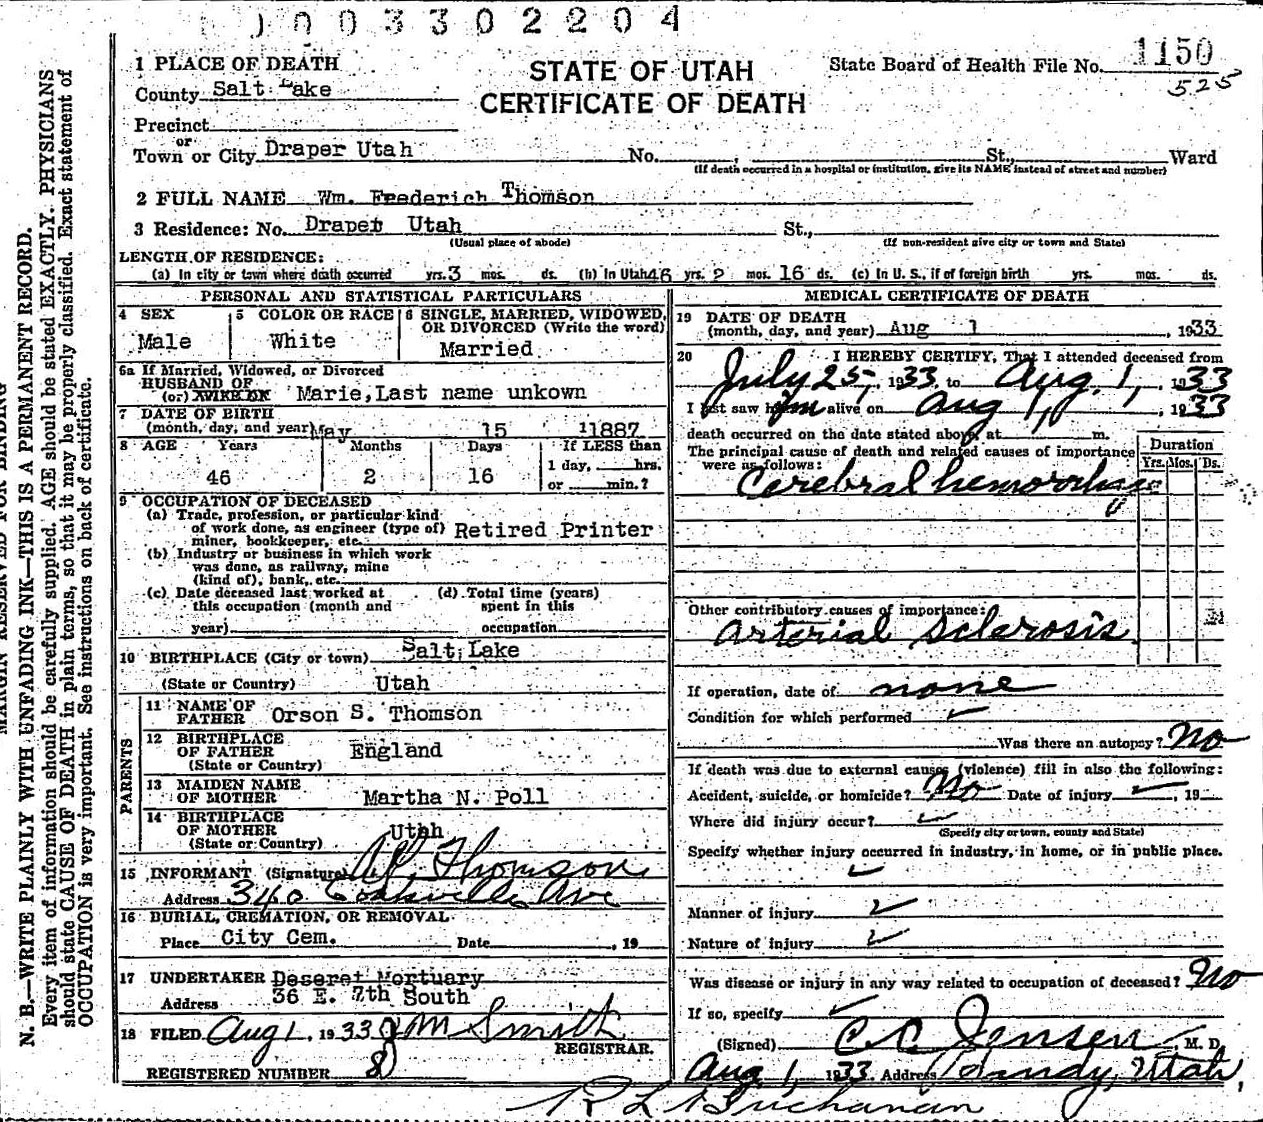 0 0 0 3 3 0 2 2 0 4
1 PLACE OF DEATH
County Salt Lake
STATE OF UTAH
CERTIFICATE OF DEATH
State Board of Health File No. 1150
525
Precinct
or
Town or City Draper Utah No. , St., Ward
(If death occurred in a hospital or institution, give its NAME instead of street and number)
2 FULL NAME Wm. Frederich Thomson
3 Residence: No. Draper Utah St.,
(Usual place of abode) (If non-resident give city or town and State)
LENGTH OF RESIDENCE:
(a) In city or town where death occurred yrs. 3 mos. ds. (b) In Utah 46 yrs. 2 mos. 16 ds. (c) In U. S., if of foreign birth yrs. mos. ds.
PERSONAL AND STATISTICAL PARTICULARS
4 SEX Male
5 COLOR OR RACE White
6 SINGLE, MARRIED, WIDOWED, OR DIVORCED (Write the word)
Married
6a If Married, Widowed, or Divorced
HUSBAND OF
(or) WIFE OF Marie,Last name unkown
7 DATE OF BIRTH
(month, day, and year) May 15 1887
8 AGE Years Months Days If LESS than
46 2 16 1 day, hrs.
or min.?
9 OCCUPATION OF DECEASED
(a) Trade, profession, or particular kind
of work done, as engineer (type of) Retired Printer
miner, bookkeeper, etc.
(b) Industry or business in which work
was done, as railway, mine
(kind of), bank, etc.
(c) Date deceased last worked at
this occupation (month and
year)
(d) Total time (years)
spent in this
occupation
10 BIRTHPLACE (City or town) Salt Lake
(State or Country) Utah
PARENTS
11 NAME OF
FATHER Orson S. Thomson
12 BIRTHPLACE
OF FATHER England
(State or Country)
13 MAIDEN NAME
OF MOTHER Martha N. Poll
14 BIRTHPLACE
OF MOTHER Utah
(State or Country)
15 INFORMANT (Signature) Thomson
Address 340 Ave
16 BURIAL, CREMATION, OR REMOVAL
Place City Cem. Date , 19
17 UNDERTAKER Deseret Mortuary
Address 36 E. 7th South
18 FILED Aug 1, 1933 Smith
REGISTRAR.
REGISTERED NUMBER 8
MEDICAL CERTIFICATE OF DEATH
19 DATE OF DEATH
(month, day, and year) Aug 1 , 1933
20 I HEREBY CERTIFY, That I attended deceased from
July 25, 1933 to Aug. 1, 1933
I last saw him alive on Aug 1, 1933
death occurred on the date stated above, at m.
The principal cause of death and related causes of importance
were as follows:
Duration
Yrs. Mos. Ds.
Cerebral hemorrhage
Other contributory causes of importance:
Arterial Sclerosis
If operation, date of none
Condition for which performed ✓
Was there an autopsy? No
If death was due to external causes (violence) fill in also the following:
Accident, suicide, or homicide? No Date of injury , 19
Where did injury occur? ✓
(Specify city or town, county and State)
Specify whether injury occurred in industry, in home, or in public place.
✓
Manner of injury ✓
Nature of injury ✓
Was disease or injury in any way related to occupation of deceased? No
If so, specify ✓
(Signed) C C Jensen , M. D.
Aug 1, 1933. Address Sandy, Utah,
Buchanan
MARGIN RESERVED FOR BINDING
N. B.—WRITE PLAINLY WITH UNFADING INK—THIS IS A PERMANENT RECORD.
Every item of information should be carefully supplied. AGE should be stated EXACTLY. PHYSICIANS
should state CAUSE OF DEATH in plain terms, so that it may be properly classified. Exact statement of
OCCUPATION is very important. See instructions on back of certificate.